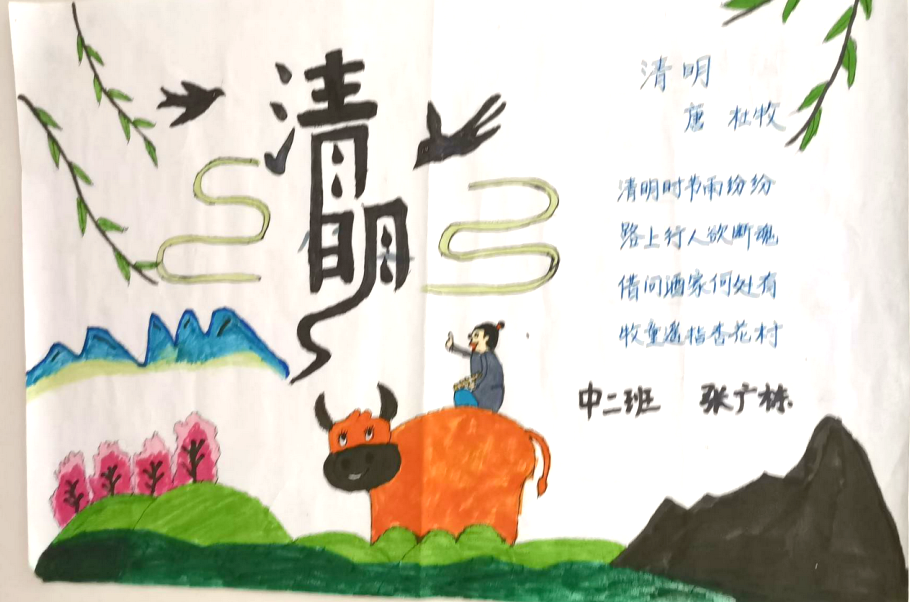 清明
清明
唐 杜牧
清明时节雨纷纷
路上行人欲断魂
借问酒家何处有
牧童遥指杏花村
中二班 张广栋